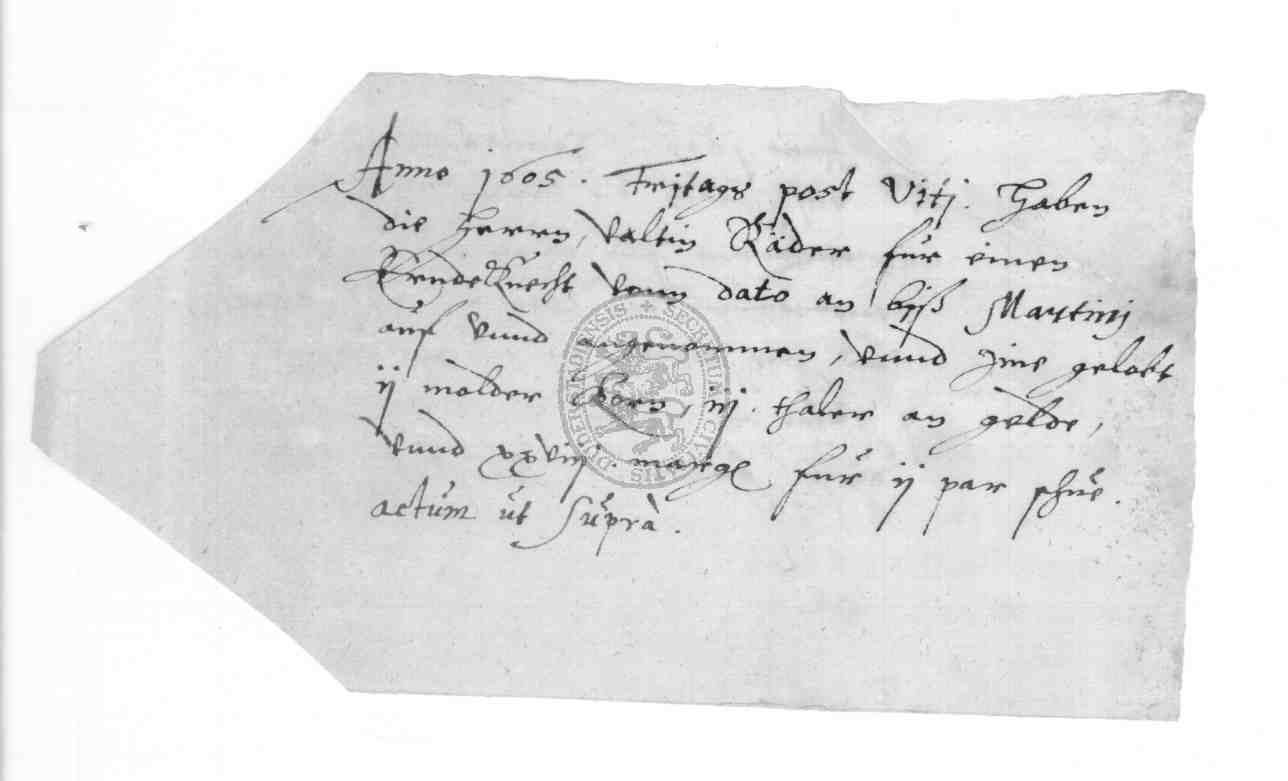 Anno 1605. Frjtags post Vitj. Haben
die herrn, Valtin Räder für einen
ErndeKnecht vonn dato an biß Martinj
auf vnnd angenommen, vnnd jme gelobt
ij molder Korn, iij. thaler an gelde,
vnnd xxviij. margl für ij par schue.
actum ut suprà.
SECRETUM CIVITATIS DUDERSTADENSIS